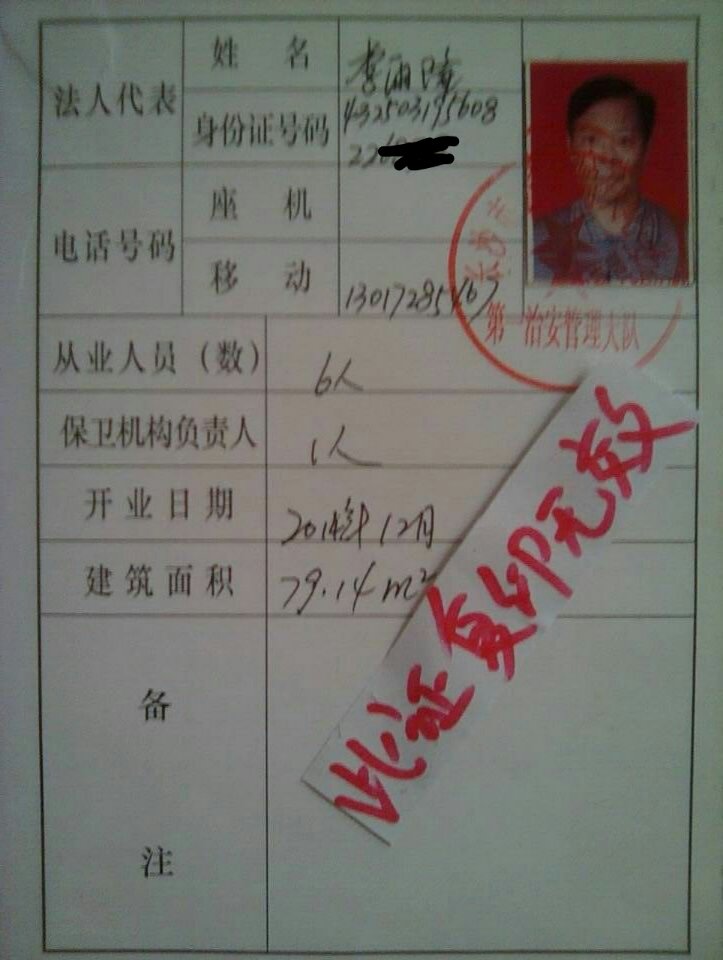 法人代表
姓 名
李雨
身份证号码
4325031975608
226
电话号码
座 机
移 动
13017285467
第一治安管理大队
从业人员（数）
6人
保卫机构负责人
1人
开业日期
2014年12月
建筑面积
79.14m²
此证复印无效
备
注